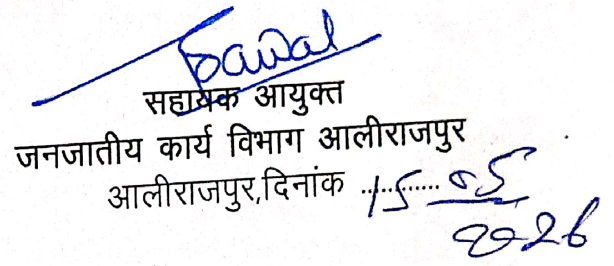 सहायक आयुक्त
जनजातीय कार्य विभाग आलीराजपुर
आलीराजपुर,दिनांक ............ 15 05
2026